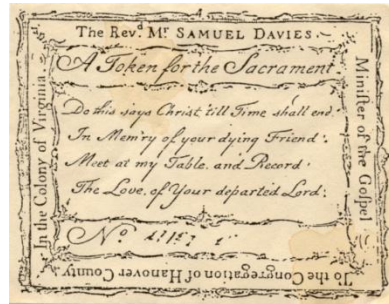 The Revᵈ Mʳ SAMUEL DAVIES
Miniſter of the Goſpel
To the Congregation of Hanover County
In the Colony of Virginia
A Token for the Sacrament
Do this says Christ till Time shall end.
In Mem'ry of your dying Friend.
Meet at my Table, and Record
The Love, of Your departed Lord.
Nº